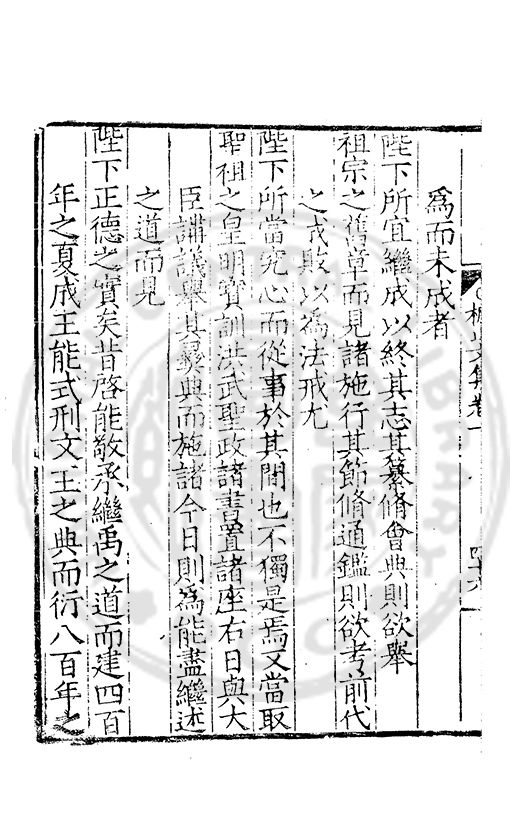 爲而未成者
陛下所宜繼成以終其志其纂脩會典則欲舉
祖宗之舊章而見諸施行其節脩通鑑則欲考前代
之成敗以爲法戒尤
陛下所當究心而從事於其間也不獨是焉又當取
聖祖之皇明寳訓洪武聖政諸書置諸座右日與大
臣講議舉其彝典而施諸今日則爲能盡繼述
之道而見
陛下正德之實矣昔啓能敬承繼禹之道而建四百
年之夏成王能式刑文王之典而衍八百年之